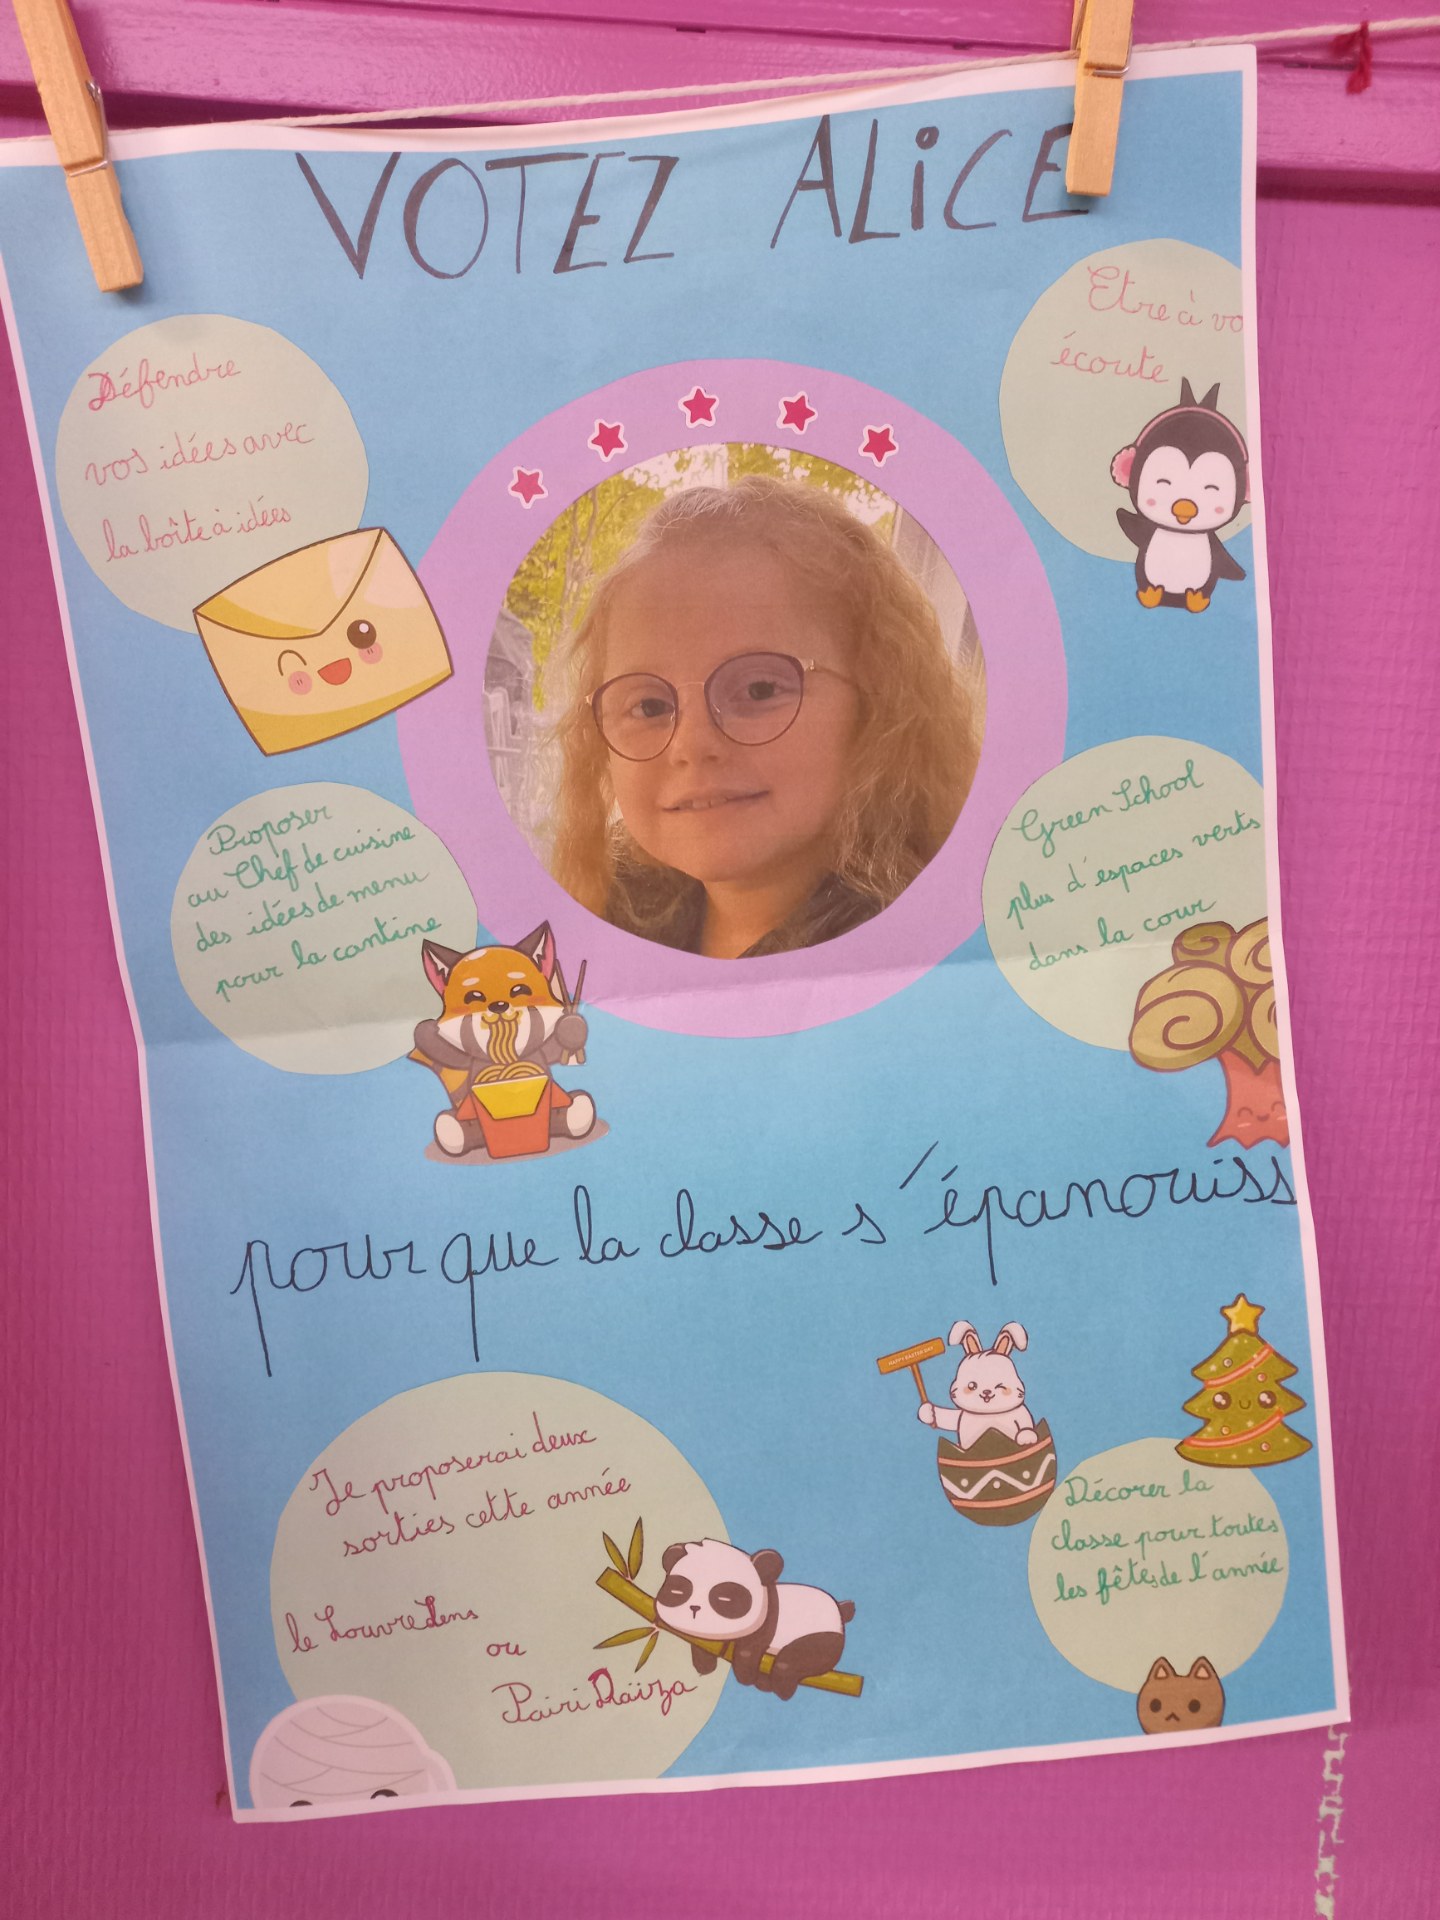 VOTEZ ALiCE
Défendre
vos idées avec
la boîte à idées
Etre à vo
écoute
Proposer
au Chef de cuisine
des idées de menu
pour la cantine
Green School
plus d'espaces verts
dans la cour
pour que la classe s'épanouiss
Je proposerai deux
sorties cette année
le Louvre Lens
ou
Pairi Daïza
HAPPY EASTER DAY
Décorer la
classe pour toutes
les fêtes de l'année